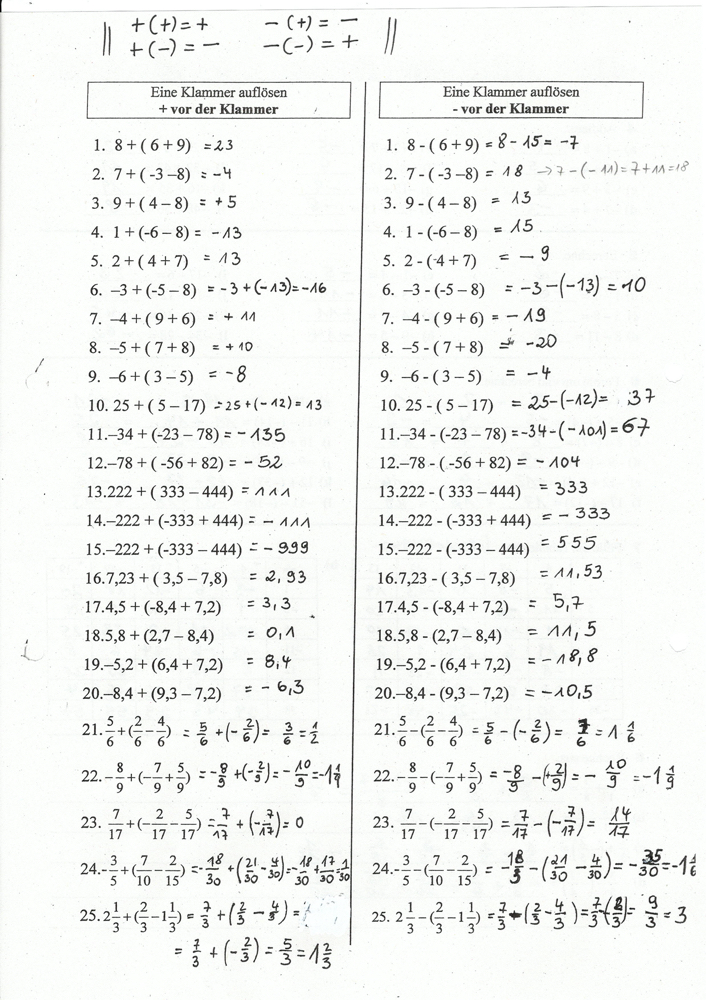 +(+)=+   -(+)=-
+(-)=-   -(-)=+
Eine Klammer auflösen
+ vor der Klammer
1. 8 + ( 6 + 9) = 23
2. 7 + ( -3 –8) = -4
3. 9 + ( 4 – 8) = +5
4. 1 + (-6 – 8) = -13
5. 2 + ( 4 + 7) = 13
6. –3 + (-5 – 8) = -3 + (-13) = -16
7. –4 + ( 9 + 6) = + 11
8. –5 + ( 7 + 8) = +10
9. –6 + ( 3 – 5) = -8
10. 25 + ( 5 – 17) = 25 + (-12) = 13
11.–34 + (-23 – 78) = - 135
12.–78 + ( -56 + 82) = - 52
13.222 + ( 333 – 444) = 111
14.–222 + (-333 + 444) = - 111
15.–222 + (-333 – 444) = - 999
16.7,23 + ( 3,5 – 7,8) = 2,93
17.4,5 + (-8,4 + 7,2) = 3,3
18.5,8 + (2,7 – 8,4) = 0,1
19.–5,2 + (6,4 + 7,2) = 8,4
20.–8,4 + (9,3 – 7,2) = - 6,3
21. 5/6 + (2/6 – 4/6) = 5/6 + (- 2/6) = 3/6 = 1/2
22. – 8/9 + (– 7/9 + 5/9) = - 8/9 + (- 2/9) = - 10/9 = -1 1/9
23. 7/17 + (– 2/17 – 5/17) = 7/17 + (- 7/17) = 0
24. - 3/5 + (7/10 – 2/15) = - 18/30 + (21/30 - 4/30) = - 18/30 + 17/30 = - 1/30
25. 2 1/3 + (2/3 – 1 1/3) = 7/3 + (2/3 - 4/3) =
= 7/3 + (- 2/3) = 5/3 = 1 2/3
Eine Klammer auflösen
- vor der Klammer
1. 8 - ( 6 + 9) = 8 - 15 = -7
2. 7 - ( -3 –8) = 18 → 7 - (-11) = 7 + 11 = 18
3. 9 - ( 4 – 8) = 13
4. 1 - (-6 – 8) = 15
5. 2 - ( 4 + 7) = - 9
6. –3 - (-5 – 8) = -3 - (-13) = 10
7. –4 - ( 9 + 6) = - 19
8. –5 - ( 7 + 8) = -20
9. –6 - ( 3 – 5) = -4
10. 25 - ( 5 – 17) = 25 - (-12) = 37
11.–34 - (-23 – 78) = -34 - (-101) = 67
12.–78 - ( -56 + 82) = - 104
13.222 - ( 333 – 444) = 333
14.–222 - (-333 + 444) = - 333
15.–222 - (-333 – 444) = 555
16.7,23 - ( 3,5 – 7,8) = 11,53
17.4,5 - (-8,4 + 7,2) = 5,7
18.5,8 - (2,7 – 8,4) = 11,5
19.–5,2 - (6,4 + 7,2) = - 18,8
20.–8,4 - (9,3 – 7,2) = -10,5
21. 5/6 – (2/6 – 4/6) = 5/6 - (- 2/6) = 7/6 = 1 1/6
22. – 8/9 – (– 7/9 + 5/9) = - 8/9 - (+ 2/9) = - 10/9 = -1 1/9
23. 7/17 – (– 2/17 – 5/17) = 7/17 - (- 7/17) = 14/17
24. - 3/5 – (7/10 – 2/15) = - 18/ - (21/30 - 4/30) = - 35/30 = -1 1/6
25. 2 1/3 – (2/3 – 1 1/3) = 7/3 - (2/3 - 4/3) = 7/3 = 9/3 = 3